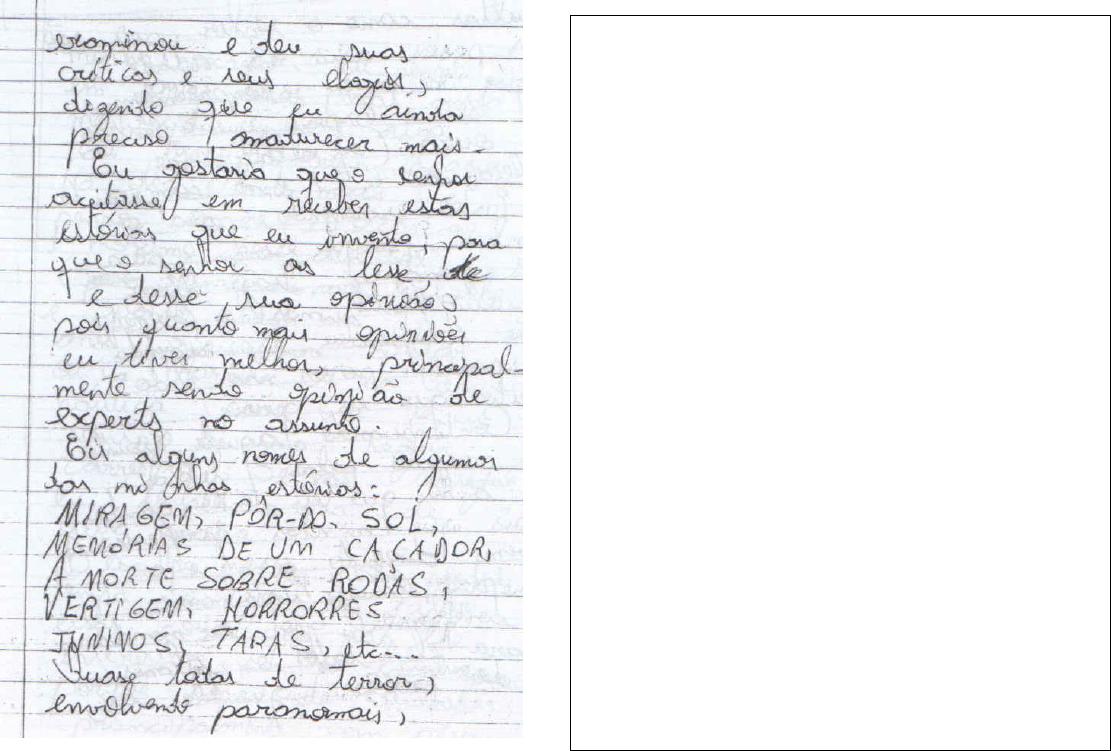 examinou e deu suas
críticas e seus elogios,
dizendo que eu ainda
preciso amaturecer mais.
Eu gostaria que o senhor
aceitasse em receber estas
estórias que eu invento, para
que o senhor as lesse
e desse sua opinião,
pois quanto mais opiniões
eu tiver melhor, principal-
mente sendo opinião de
experts no assunto.
Eis alguns nomes de algumas
das minhas estórias:
MIRAGEM, PÔR-DO-SOL,
MEMÓRIAS DE UM CAÇADOR,
A MORTE SOBRE RODAS,
VERTIGEM, HORRORRES
JUNINOS, TARAS, etc...
Quase todas de terror,
envolvendo paranormais,